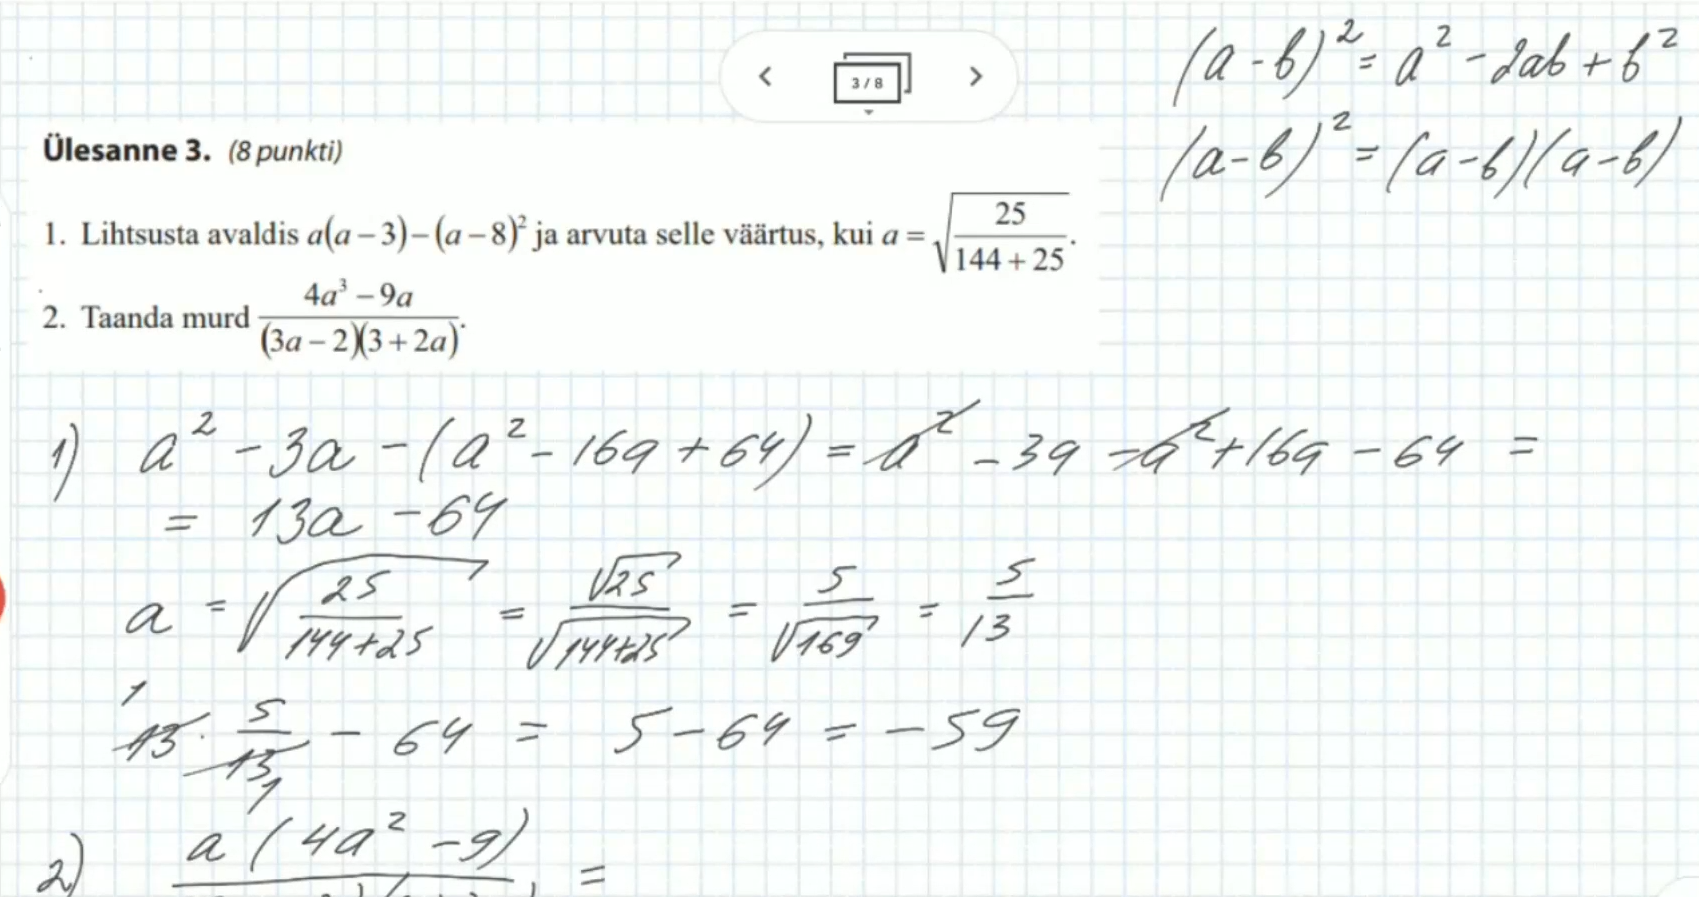 3 / 8
(a - b)² = a² - 2ab + b²
(a - b)² = (a - b)(a - b)
Ülesanne 3. (8 punkti)
1. Lihtsusta avaldis a(a – 3) – (a – 8)² ja arvuta selle väärtus, kui a = √(25/(144 + 25)).
2. Taanda murd (4a³ – 9a)/((3a – 2)(3 + 2a)).
1) a² - 3a - (a² - 16a + 64) = a² - 3a - a² + 16a - 64 =
= 13a - 64
a = √(25/(144+25)) = √25/√(144+25) = 5/√169 = 5/13
13 · 5/13 - 64 = 5 - 64 = -59
1
1
2) a(4a² - 9) =